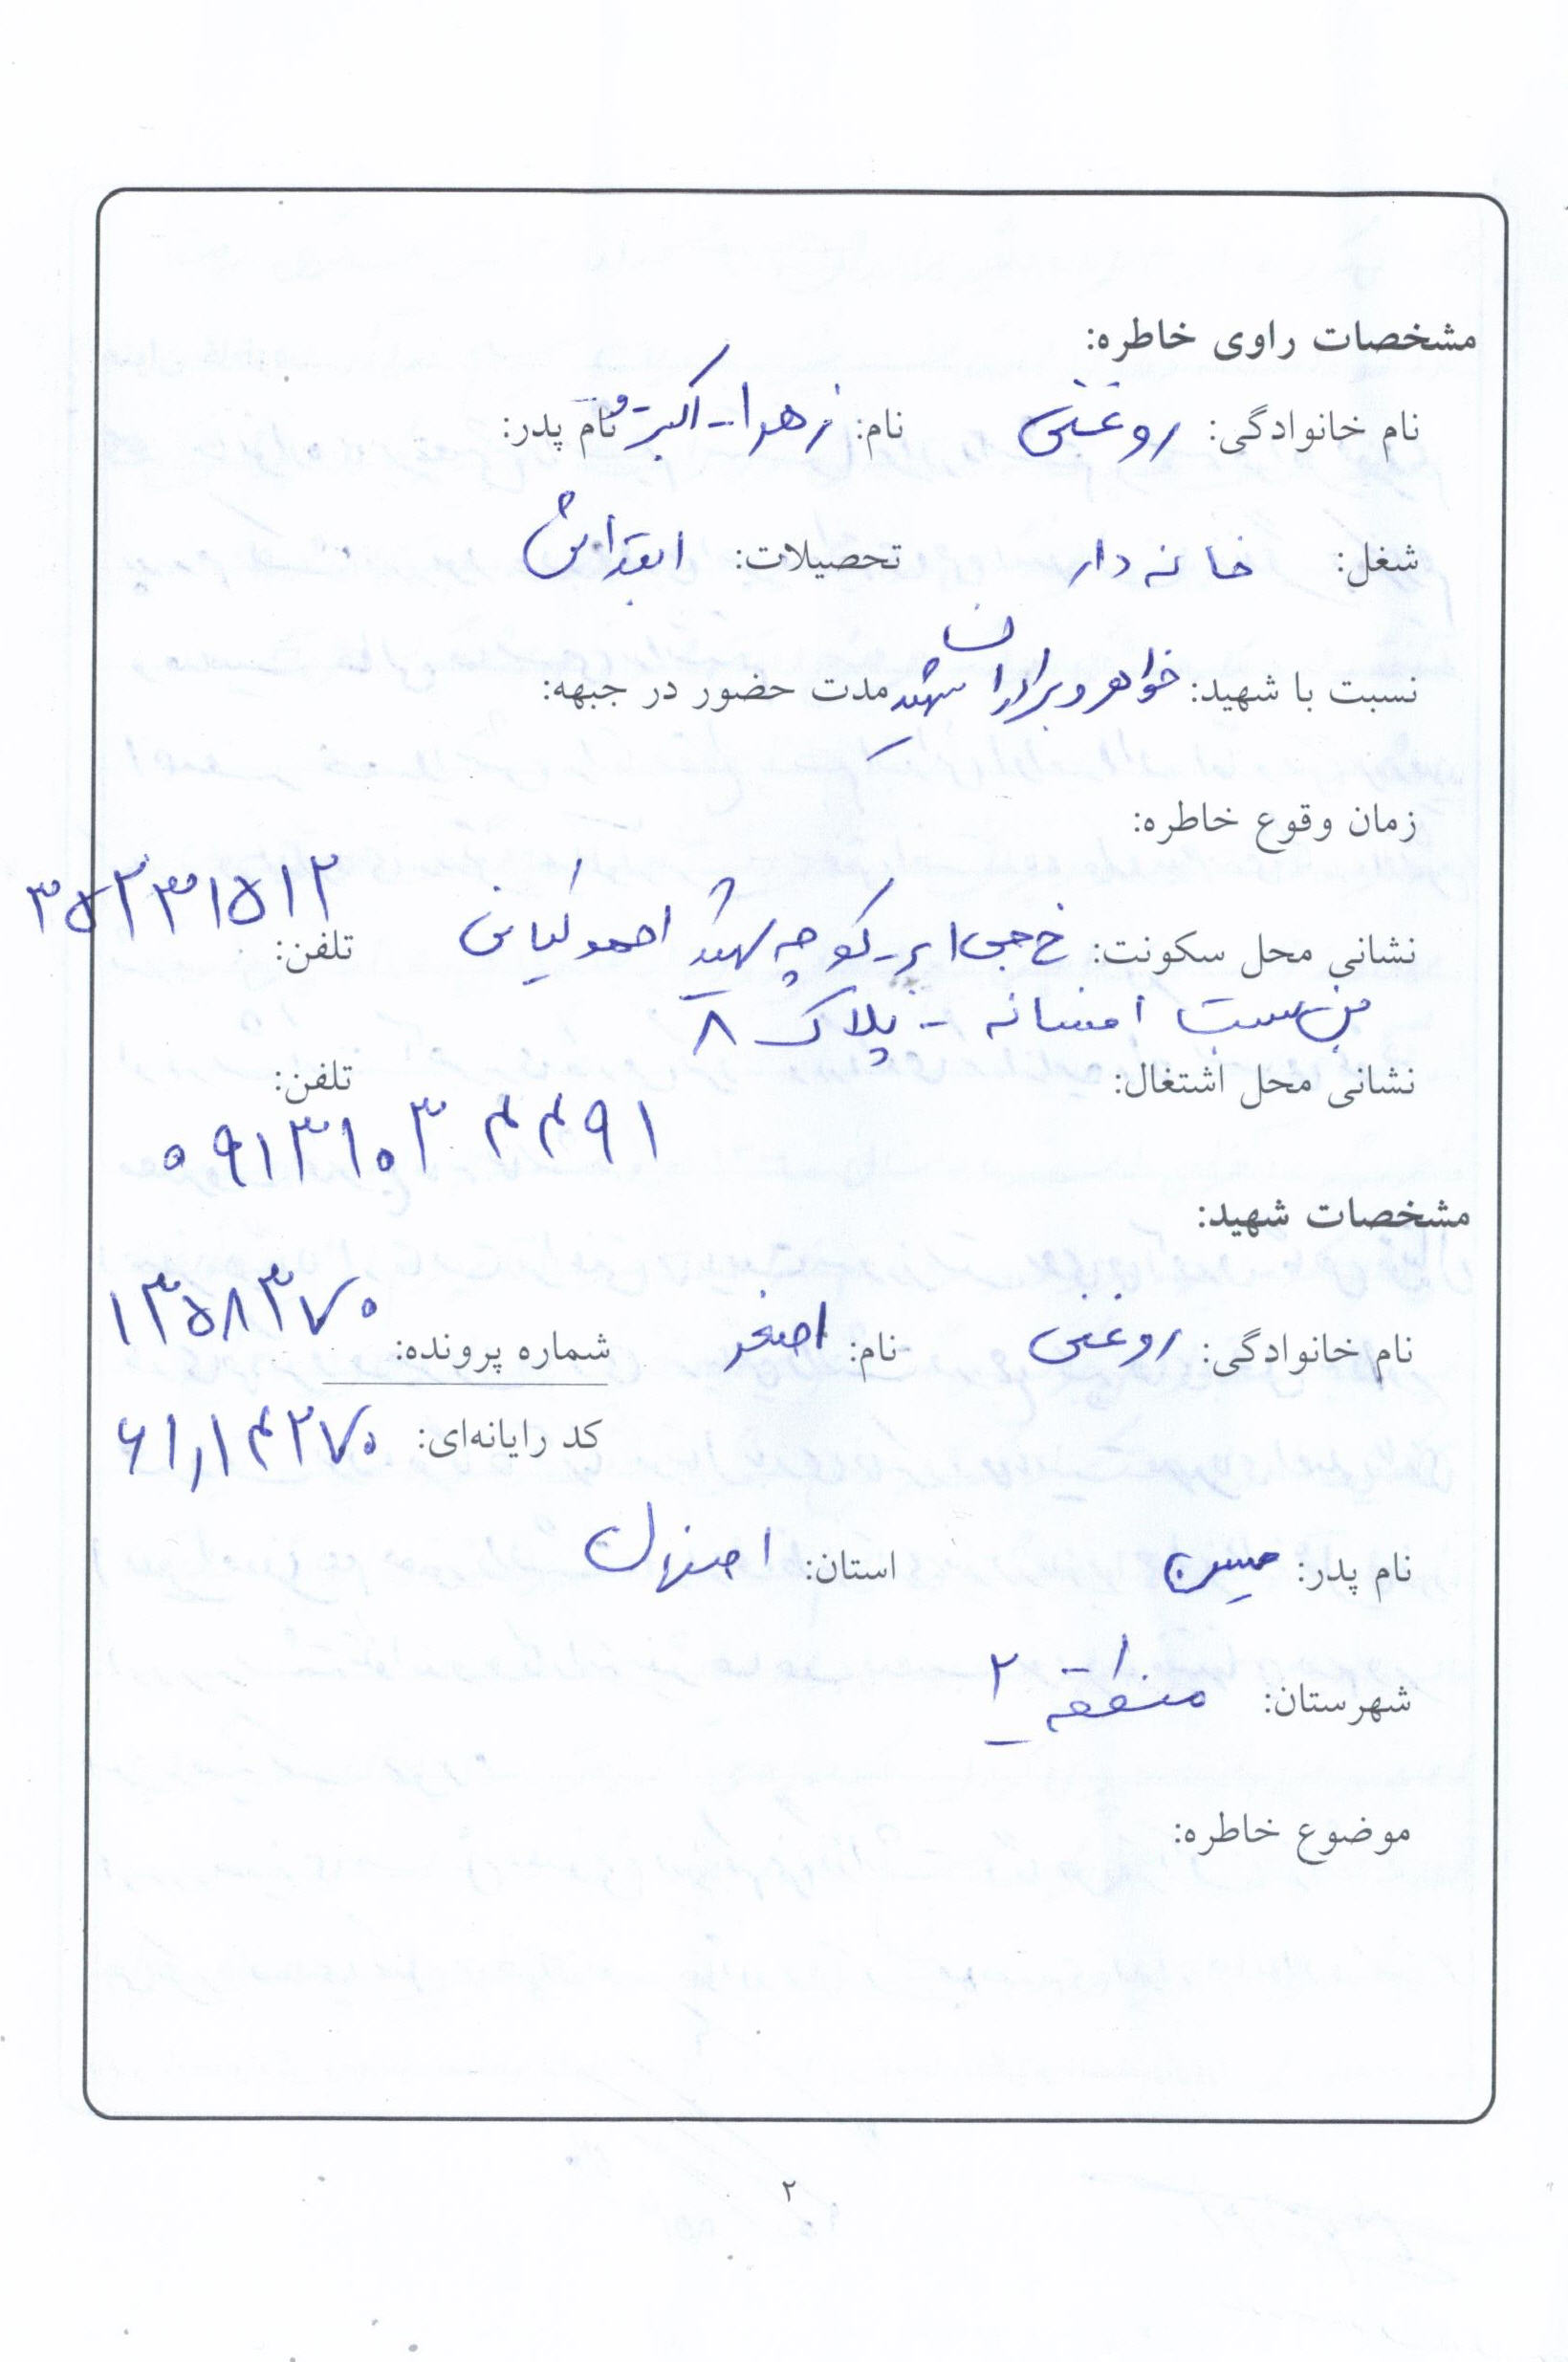 مشخصات راوی خاطره:
نام خانوادگی: روغنی نام: زهرا - اکبر و نام پدر:
شغل: خانه دار تحصیلات: ابتدائی
نسبت با شهید: خواهر و برادران شهید مدت حضور در جبهه:
زمان وقوع خاطره:
نشانی محل سکونت: خ جی ابر - کوچه شهید احمد کیانی تلفن: ۳۵۲۳۱۵۱۲
بن بست افسانه - پلاک ۸
نشانی محل اشتغال: تلفن:
۰۹۱۳۱۰۳۴۴۹۱
مشخصات شهید:
نام خانوادگی: روغنی نام: اصغر شماره پرونده: ۱۳۵۸۳۷۰
کد رایانه‌ای: ۶۱٫۱۴۲۷۰
نام پدر: حسین استان: اصفهان
شهرستان: منطقه ۲
موضوع خاطره:
۲